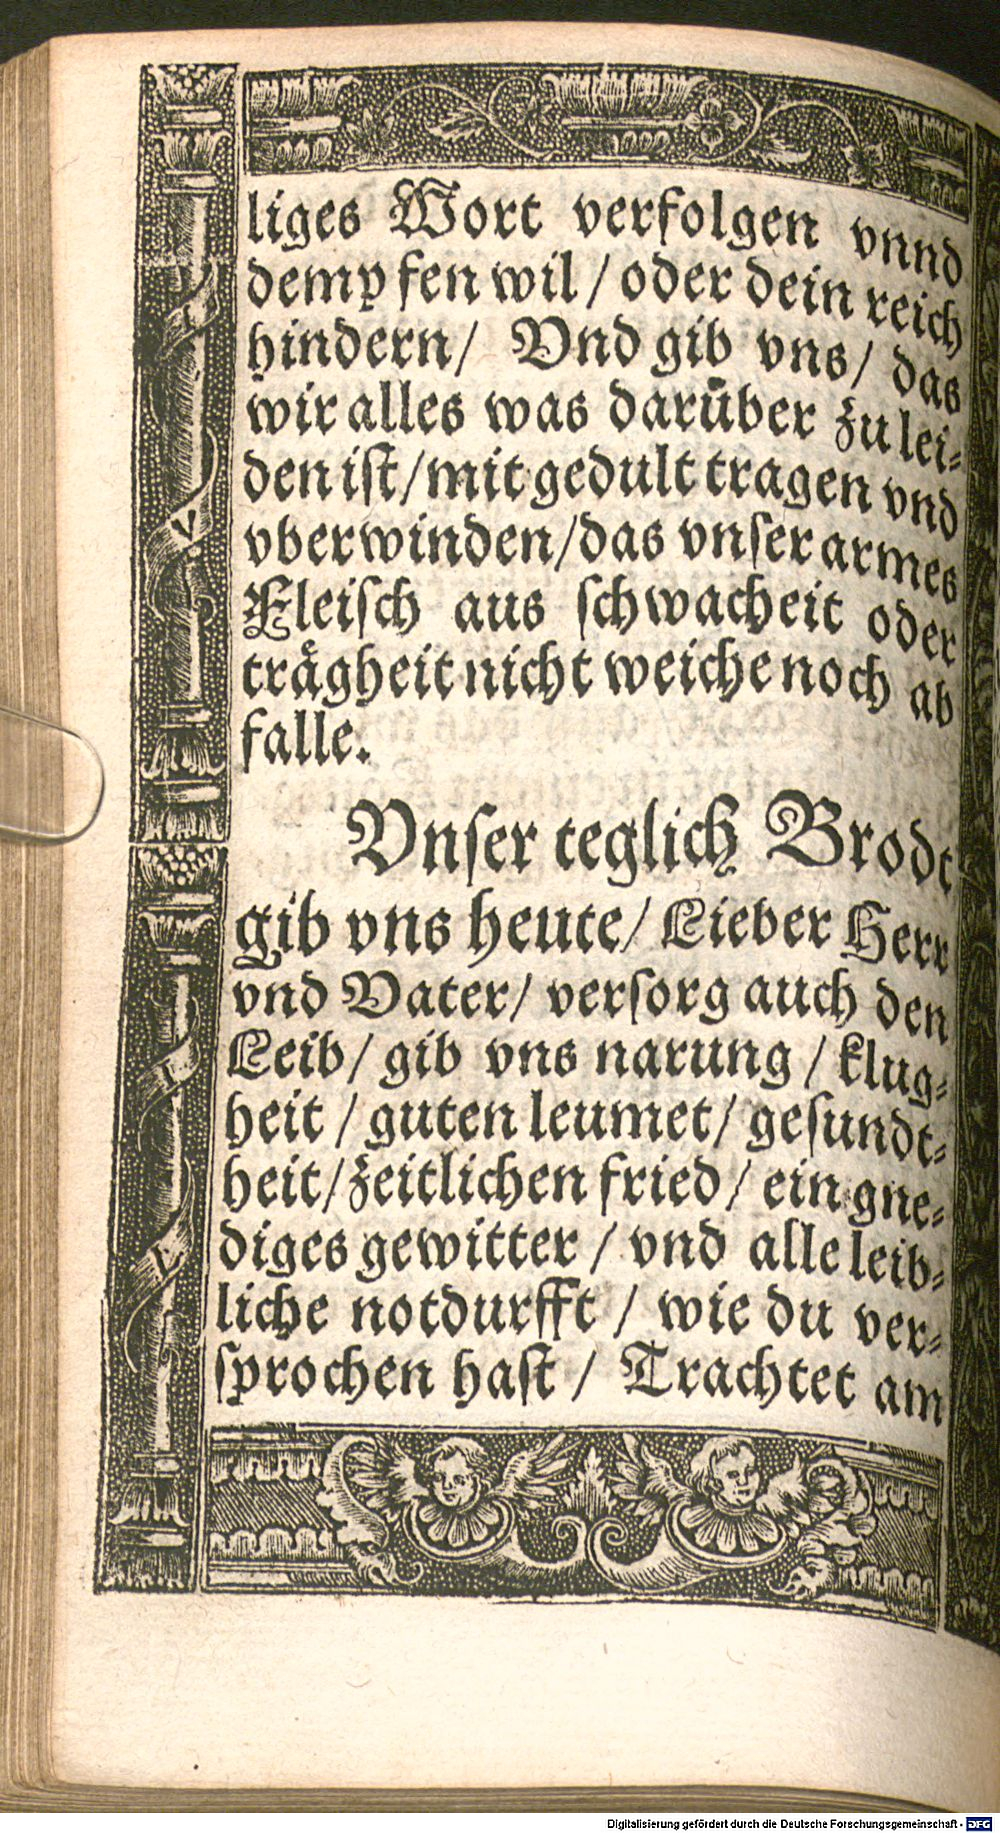 liges Wort verfolgen vnnd
dempfen wil / oder dein reich
hindern / Vnd gib vns / das
wir alles was darüber zu lei⸗
den ist / mit gedult tragen vnd
vberwinden / das vnser armes
Fleisch aus schwacheit oder
trägheit nicht weiche noch ab
falle.
Vnser teglich Brodt
gib vns heute / Lieber Herr
vnd Vater / versorg auch den
Leib / gib vns narung / klug⸗
heit / guten leumet / gesundt⸗
heit / zeitlichen fried / ein gne⸗
diges gewitter / vnd alle leib⸗
liche notdurfft / wie du ver⸗
sprochen hast / Trachtet am
Digitalisierung gefördert durch die Deutsche Forschungsgemeinschaft - DFG